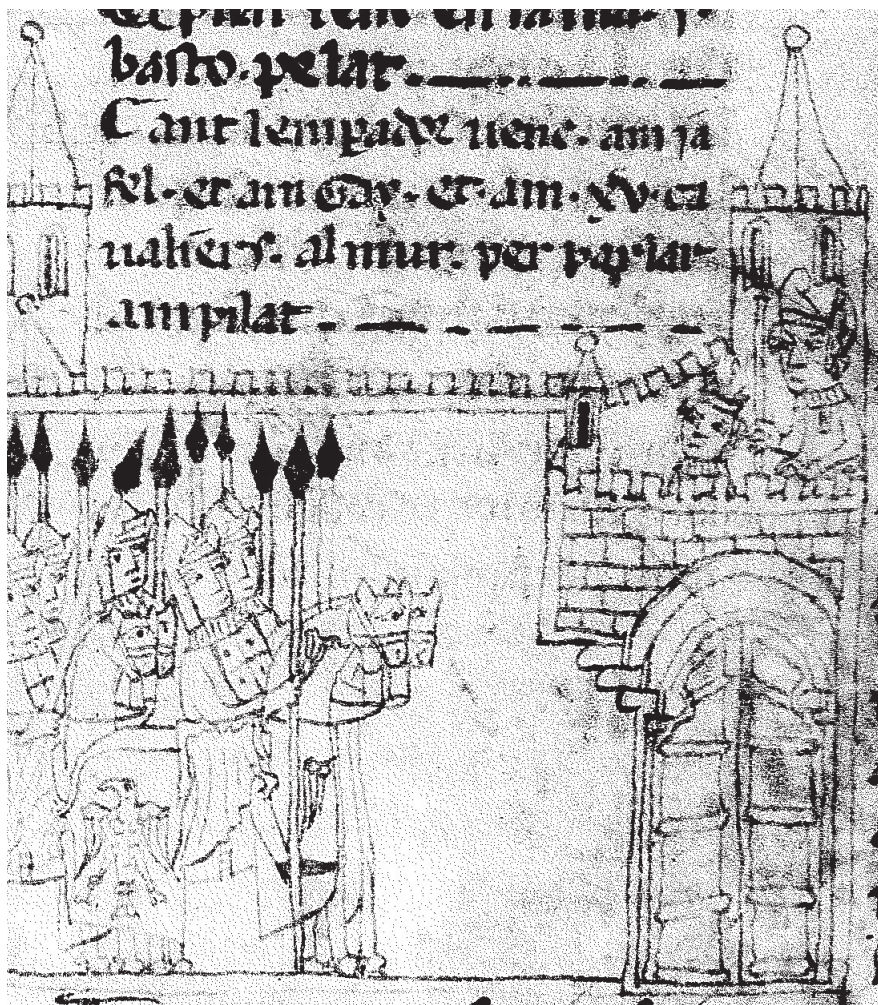 basto. pelat.
Cant lempador uenc. am ia
fel. et am Gay. et. am. xv. ca
ualiers. al mur. per parlar
am pilat